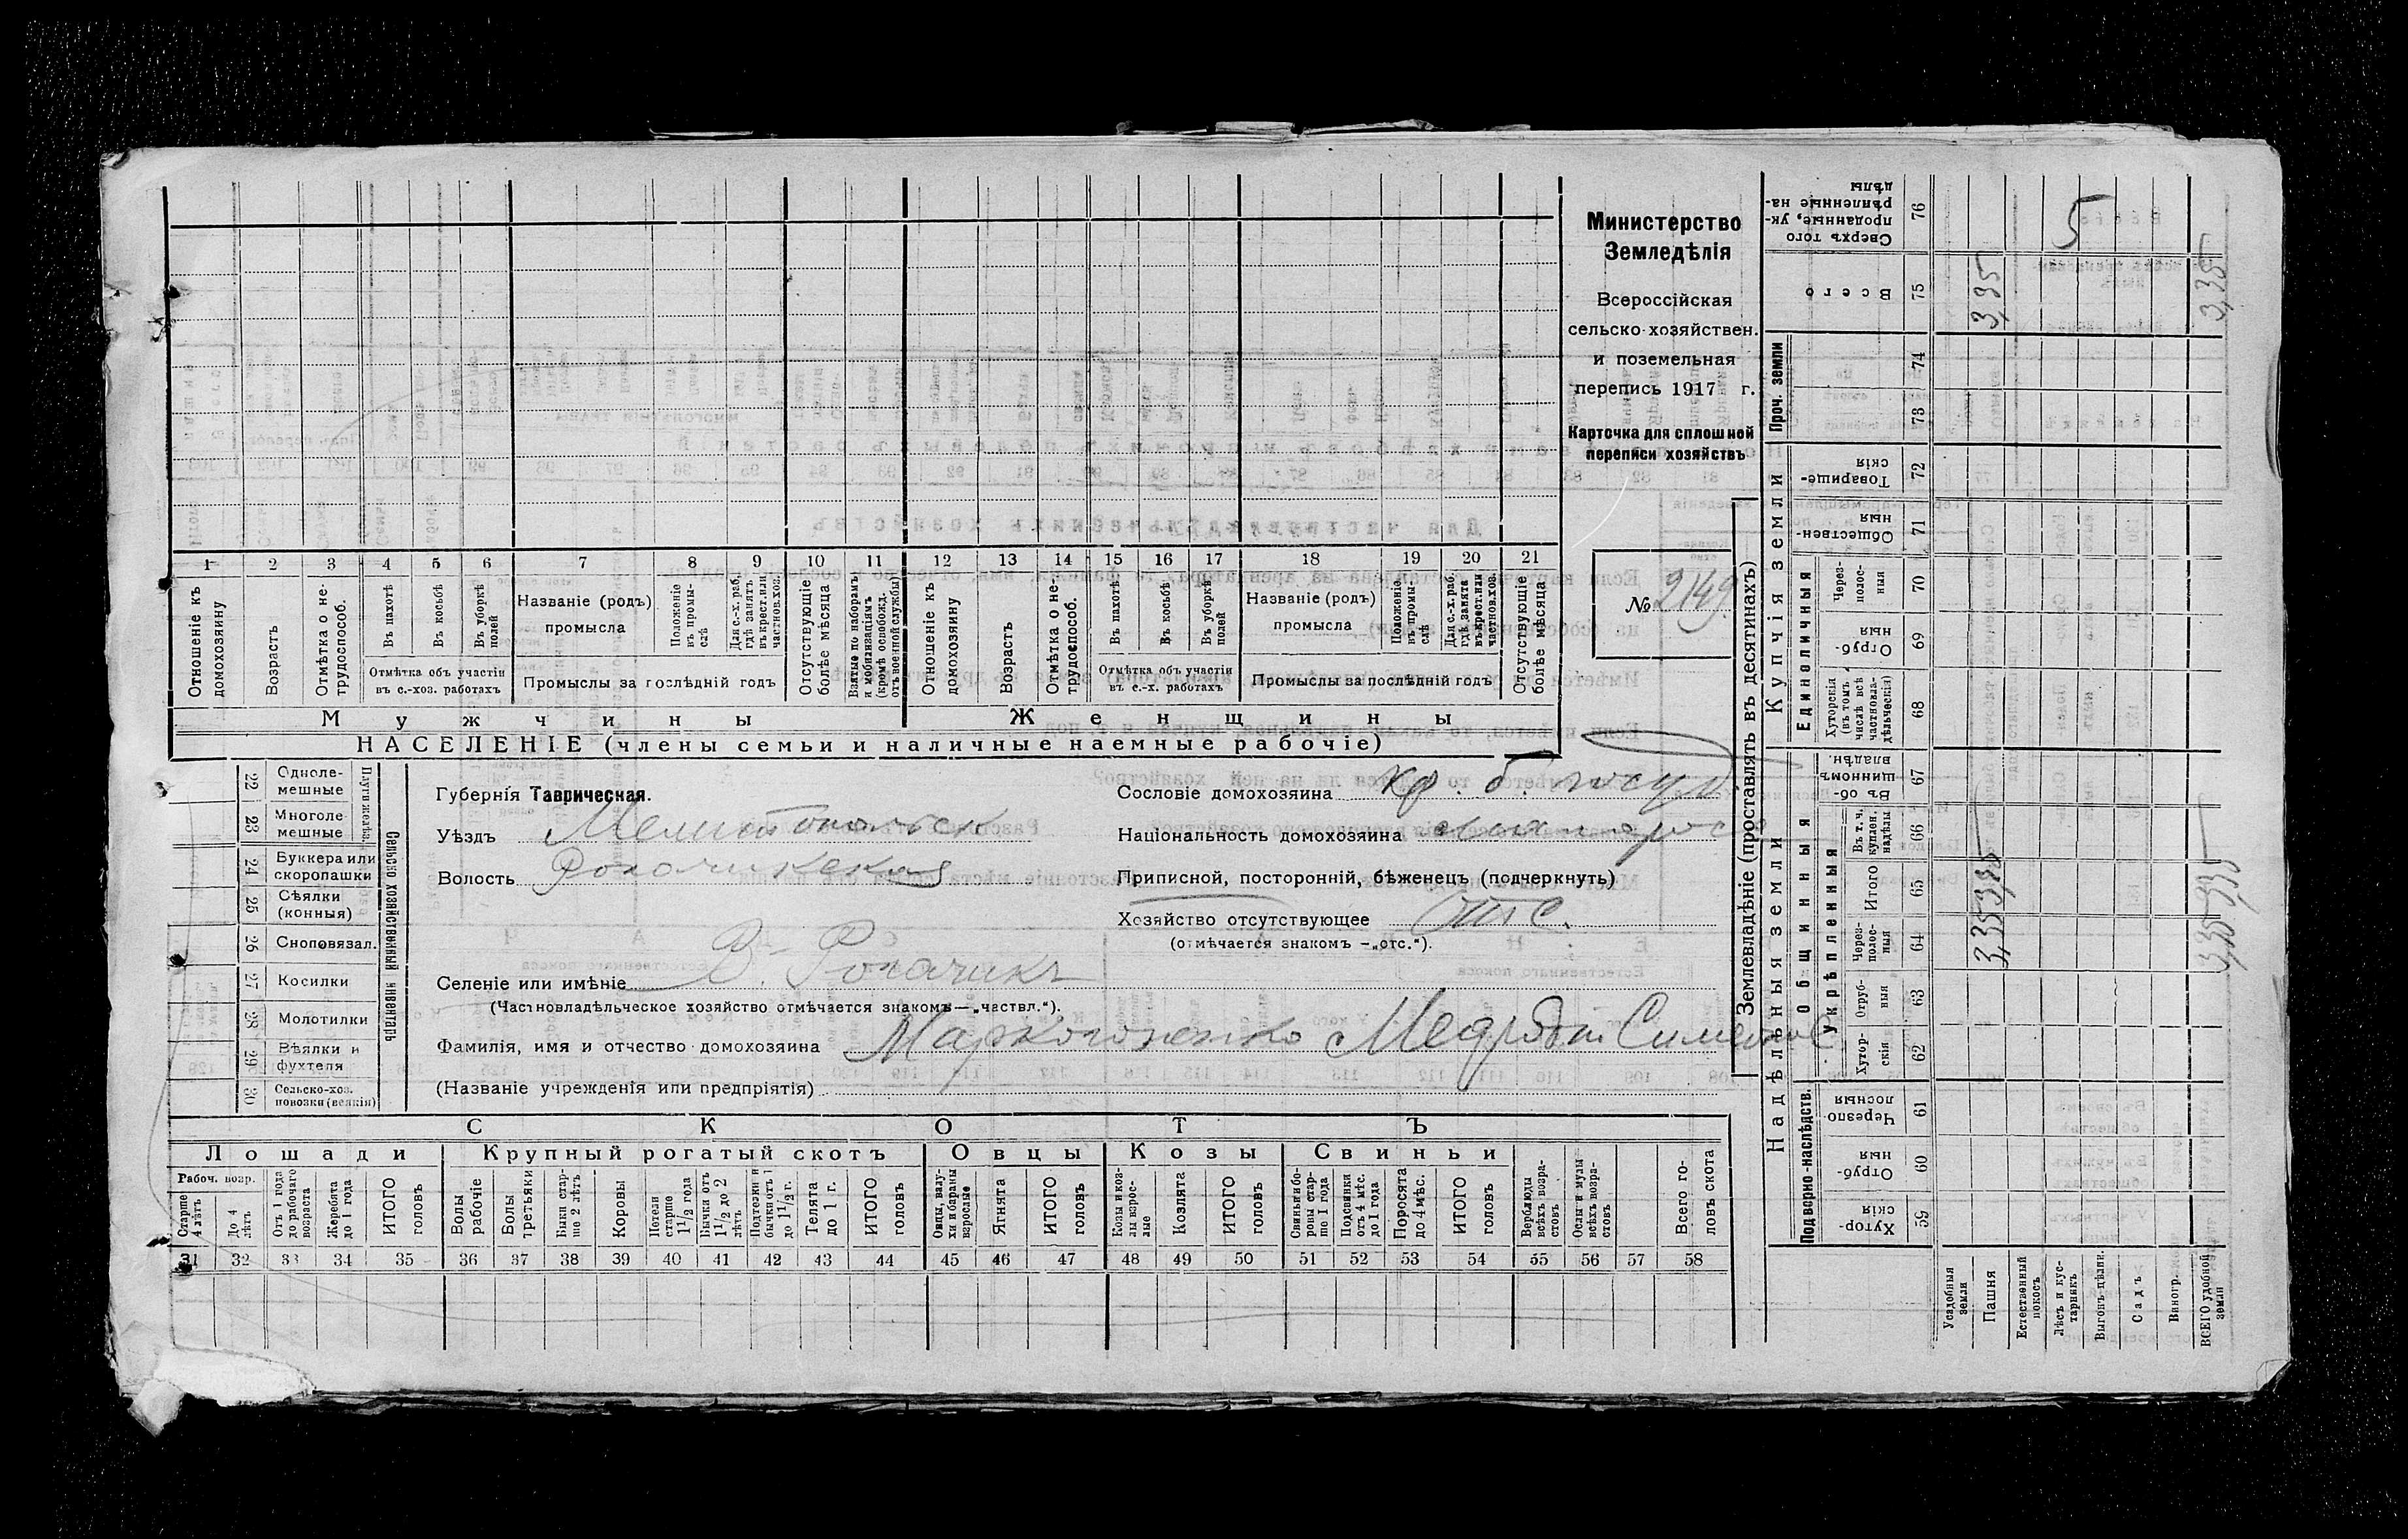 Министерство
Земледѣлія
Всероссійская
сельско-хозяйствен.
и поземельная
перепись 1917 г.
Карточка для сплошной
переписи хозяйствъ
№ 2149
1 2 3 4 5 6 7 8 9 10 11 12 13 14 15 16 17 18 19 20 21
Отношеніе къ домохозяину
Возрастъ
Отмѣтка о не-трудоспособ.
Въ пахотѣ
Въ косьбѣ
Въ уборкѣ полей
Отмѣтка объ участіи въ с.-хоз. работахъ
Названіе (родъ) промысла
Положеніе въ промы-слѣ
Для с.-х. раб, гдѣ занятъ въ крест. или частнов. хоз.
Промыслы за послѣдній годъ
Отсутствующіе болѣе мѣсяца
Взятые по наборамъ и мобилизаціямъ (кромѣ освобожд. отъ военной службы)
Отношеніе къ домохозяину
Возрастъ
Отмѣтка о не-трудоспособ.
Въ пахотѣ
Въ косьбѣ
Въ уборкѣ полей
Отмѣтка объ участіи въ с.-х. работахъ
Названіе (родъ) промысла
Положеніе въ промы-слѣ
Для с.-х. раб. гдѣ занята въ крест. или частнов. хоз.
Промыслы за послѣдній годъ
Отсутствующіе болѣе мѣсяца
Мужчины
Женщины
НАСЕЛЕНІЕ (члены семьи и наличные наемные рабочіе)
22 Одноле-мешные
23 Многоле-мешные
24 Буккера или скоропашки
25 Сѣялки (конныя)
26 Сноповязал.
27 Косилки
28 Молотилки
29 Вѣялки и фухтеля
30 Сельско-хоз. повозки (всякія)
Сельско хозяйственный инвентарь
Губернія Таврическая.
Уѣздъ Мелитопольск
Волость Рогачикская
Сословіе домохозяина Кр. б. госуд
Національность домохозяина малоросс
Приписной, посторонній, бѣженецъ (подчеркнуть)
Хозяйство отсутствующее отс.
(отмѣчается знакомъ —„отс.“).
Селеніе или имѣніе В. Рогачикъ
(Частновладѣльческое хозяйство отмѣчается знакомъ—„частвл.“).
Фамилія, имя и отчество домохозяина
(Названіе учрежденія или предпріятія)
СКОТЪ
Лошади
Крупный рогатый скотъ
Овцы
Козы
Свиньи
Рабоч. возр.
Старше 4 лѣтъ
До 4 лѣтъ
Отъ 1 года до рабочаго возраста
Жеребята до 1 года
ИТОГО головъ
Волы рабочіе
Волы третьяки
Быки стар-ше 2 лѣтъ
Коровы
Нетели старше 1 1/2 года
Бычки отъ 1 1/2 до 2 лѣтъ
Подтелки и бычки отъ 1 до 1 1/2 г.
Телята до 1 г.
ИТОГО головъ
Овцы, валу-хи и бараны взрослые
Ягнята
ИТОГО головъ
Козы и коз-лы взрос-лые
Козлята
ИТОГО головъ
Свиньи и бо-ровы стар-ше 1 года
Подсвинки отъ 4 мѣс. до 1 года
Поросята до 4 мѣс.
ИТОГО головъ
Верблюды всѣхъ возра-стовъ
Ослы и мулы всѣхъ возра-стовъ
Всего го-ловъ скота
31 32 33 34 35 36 37 38 39 40 41 42 43 44 45 46 47 48 49 50 51 52 53 54 55 56 57 58
Землевладѣніе (проставлять въ десятинахъ)
Надѣльныя земли
Купчія земли
Проч. земли
Подворно-наслѣдств.
Общинныя
укрѣпленныя
Единоличныя
Хутор-скія 59
Отруб-ныя 60
Черезпо лосныя 61
Хутор-скія 62
Отруб-ныя 63
Через-полос-ныя 64
Итого 65
Въ т. ч. куплен. надѣлы 66
Въ об-щинномъ владѣн. 67
Хуторскія (въ томъ числѣ всѣ частновла-дѣльческія) 68
Отруб-ныя 69
Через-полос-ныя 70
Обществен-ныя 71
Товарище-скія 72
73
74
Всего 75
Сверхъ того проданные, ук-рѣпленные на-дѣлы 76
Усадебныя земли
Пашня 3,35 3,35 3,35
Естественный покосъ
Лѣсъ и кус-тарникъ
Выгонъ-цѣлин.
Садъ
Виногр.
ВСЕГО удобной земли 3,35 3,35 3,35
5